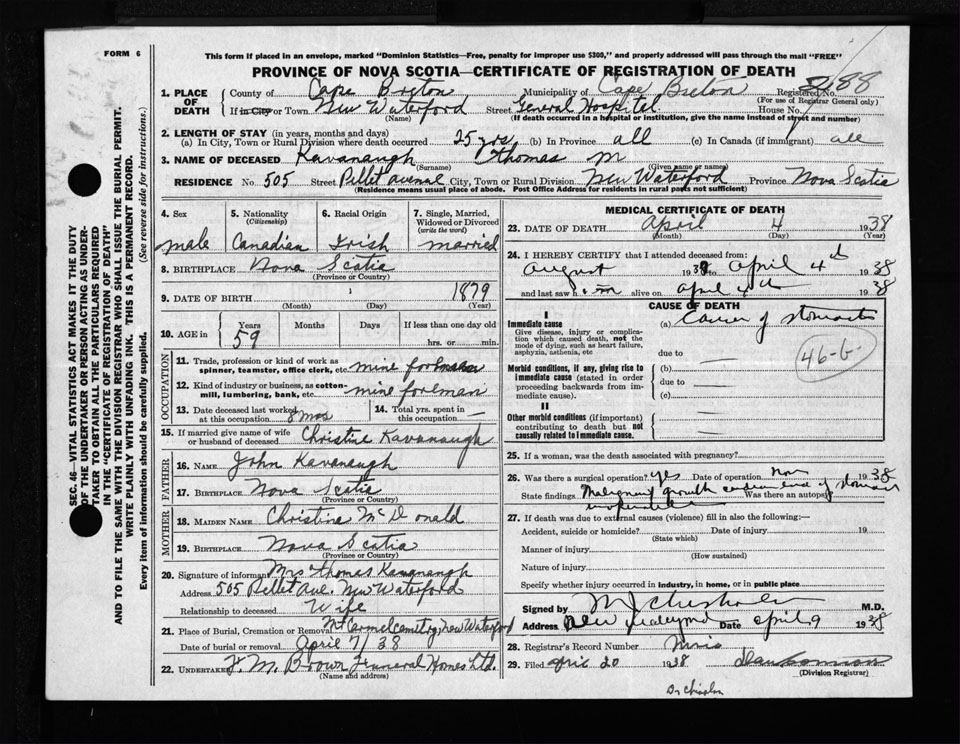 FORM 6
This form if placed in an envelope, marked "Dominion Statistics—Free, penalty for improper use $300," and properly addressed will pass through the mail "FREE"
PROVINCE OF NOVA SCOTIA—CERTIFICATE OF REGISTRATION OF DEATH
SEC. 46—VITAL STATISTICS ACT MAKES IT THE DUTY
OF THE UNDERTAKER OR PERSON ACTING AS UNDER-
TAKER TO OBTAIN ALL THE PARTICULARS REQUIRED
IN THE "CERTIFICATE OF REGISTRATION OF DEATH"
AND TO FILE THE SAME WITH THE DIVISION REGISTRAR WHO SHALL ISSUE THE BURIAL PERMIT.
WRITE PLAINLY WITH UNFADING INK. THIS IS A PERMANENT RECORD.
Every item of information should be carefully supplied. (See reverse side for instructions.)
1. PLACE OF DEATH County of Cape Breton Municipality of Cape Breton Registered No. 88
(For use of Registrar General only)
If in City or Town New Waterford Street General Hospital House No.
(Name) (If death occurred in a hospital or institution, give the name instead of street and number)
2. LENGTH OF STAY (in years, months and days)
(a) In City, Town or Rural Division where death occurred 25 yrs (b) In Province all (c) In Canada (if immigrant) all
3. NAME OF DECEASED Kavanaugh Thomas M
(Surname) (Given name or names)
RESIDENCE No. 505 Street Pellet avenue City, Town or Rural Division New Waterford Province Nova Scotia
(Residence means usual place of abode. Post Office Address for residents in rural parts not sufficient)
4. Sex male
5. Nationality (Citizenship) Canadian
6. Racial Origin Irish
7. Single, Married, Widowed or Divorced (write the word) married
8. BIRTHPLACE Nova Scotia
(Province or Country)
9. DATE OF BIRTH 1879
(Month) (Day) (Year)
10. AGE in Years 59 Months Days If less than one day old hrs. or min.
OCCUPATION
11. Trade, profession or kind of work as spinner, teamster, office clerk, etc. mine foreman
12. Kind of industry or business, as cotton-mill, lumbering, bank, etc. mine foreman
13. Date deceased last worked at this occupation 8 mos
14. Total yrs. spent in this occupation —
15. If married give name of wife or husband of deceased Christine Kavanaugh
FATHER
16. NAME John Kavanaugh
17. BIRTHPLACE Nova Scotia
(Province or Country)
MOTHER
18. MAIDEN NAME Christine McDonald
19. BIRTHPLACE Nova Scotia
(Province or Country)
20. Signature of informant Mrs Thomas Kavanaugh
Address 505 Pellet Ave. New Waterford
Relationship to deceased Wife
21. Place of Burial, Cremation or Removal Mt Carmel Cemetry, New Waterford
Date of burial or removal April 7/38
22. UNDERTAKER F. M. Brown Funeral Homes Ltd.
(Name and address)
MEDICAL CERTIFICATE OF DEATH
23. DATE OF DEATH April 4 1938
(Month) (Day) (Year)
24. I HEREBY CERTIFY that I attended deceased from:
August 193 to April 4th 1938
and last saw h im alive on April 4th 1938
CAUSE OF DEATH
I
Immediate cause (a) Cancer of stomach
Give disease, injury or complication which caused death, not the mode of dying, such as heart failure, asphyxia, asthenia, etc
due to —
46-b.
Morbid conditions, if any, giving rise to immediate cause (stated in order proceeding backwards from immediate cause).
(b) —
due to —
(c) —
II
Other morbid conditions (if important) contributing to death but not causally related to immediate cause.
25. If a woman, was the death associated with pregnancy?
26. Was there a surgical operation? yes Date of operation 1938
State findings Malignant growth end of stomach Was there an autopsy
inoperable
27. If death was due to external causes (violence) fill in also the following:—
Accident, suicide or homicide? Date of injury 19
(State which)
Manner of injury
(How sustained)
Nature of injury
Specify whether injury occurred in industry, in home, or in public place
Signed by M J Chisholm M.D.
Address New Waterford Date April 9 1938
28. Registrar's Record Number
29. Filed April 20 1938
(Division Registrar)
Dr Chisholm